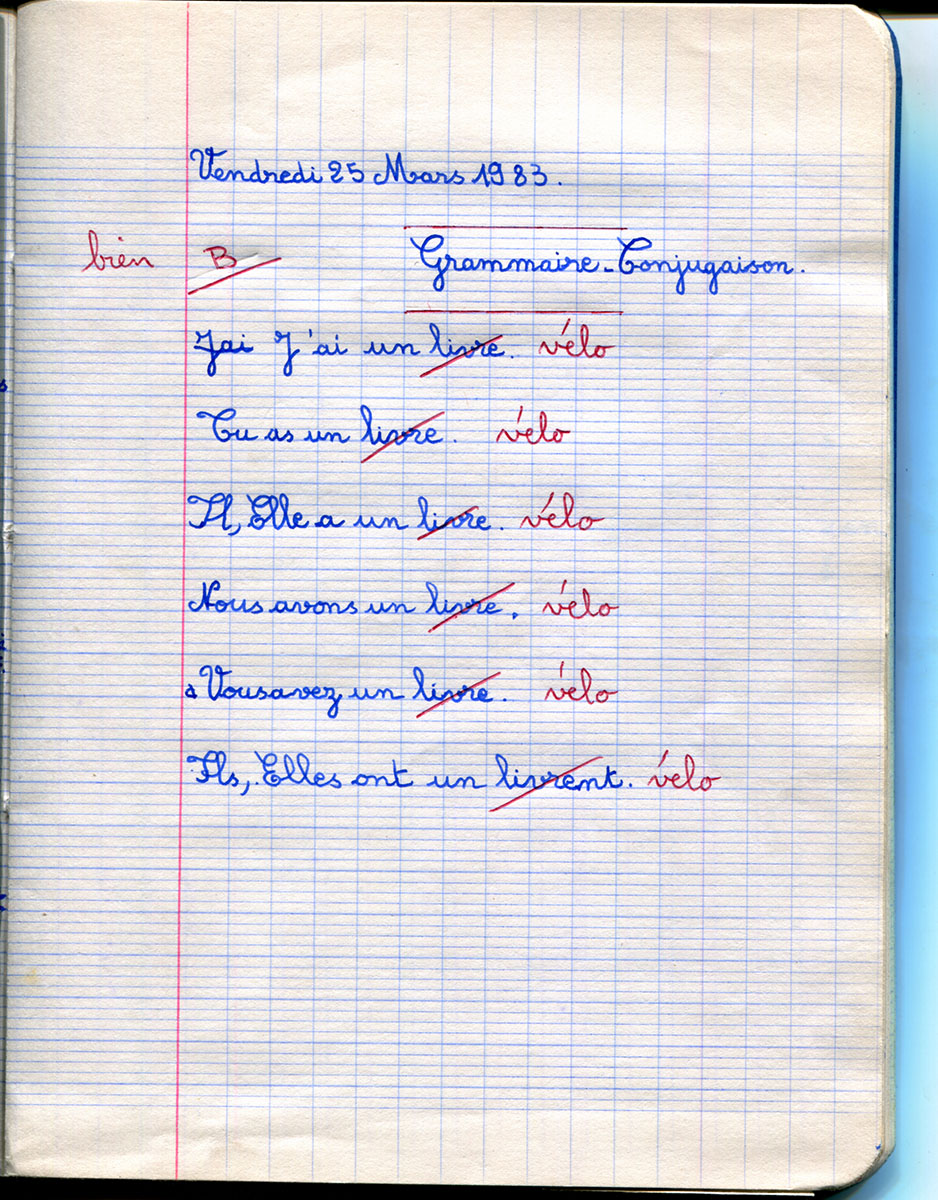 Vendredi 25 Mars 1983.
bien B Grammaire-Conjugaison.
Jai J'ai un livre. vélo
Tu as un livre. vélo
Il, Elle a un livre. vélo
Nous avons un livre. vélo
Vous avez un livre. vélo
Ils, Elles ont un livrent. vélo